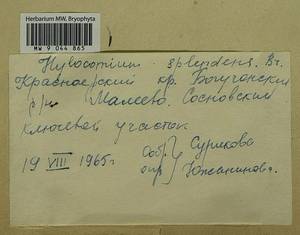 Herbarium MW, Bryophyta
MW 9 044 865
Hylocomium splendens. Br.
Красноярский кр. Богучанский
р/н Малеево. Сосновский
ключевой участок.
19 VIII 1965г Соб. Сурикова
опр